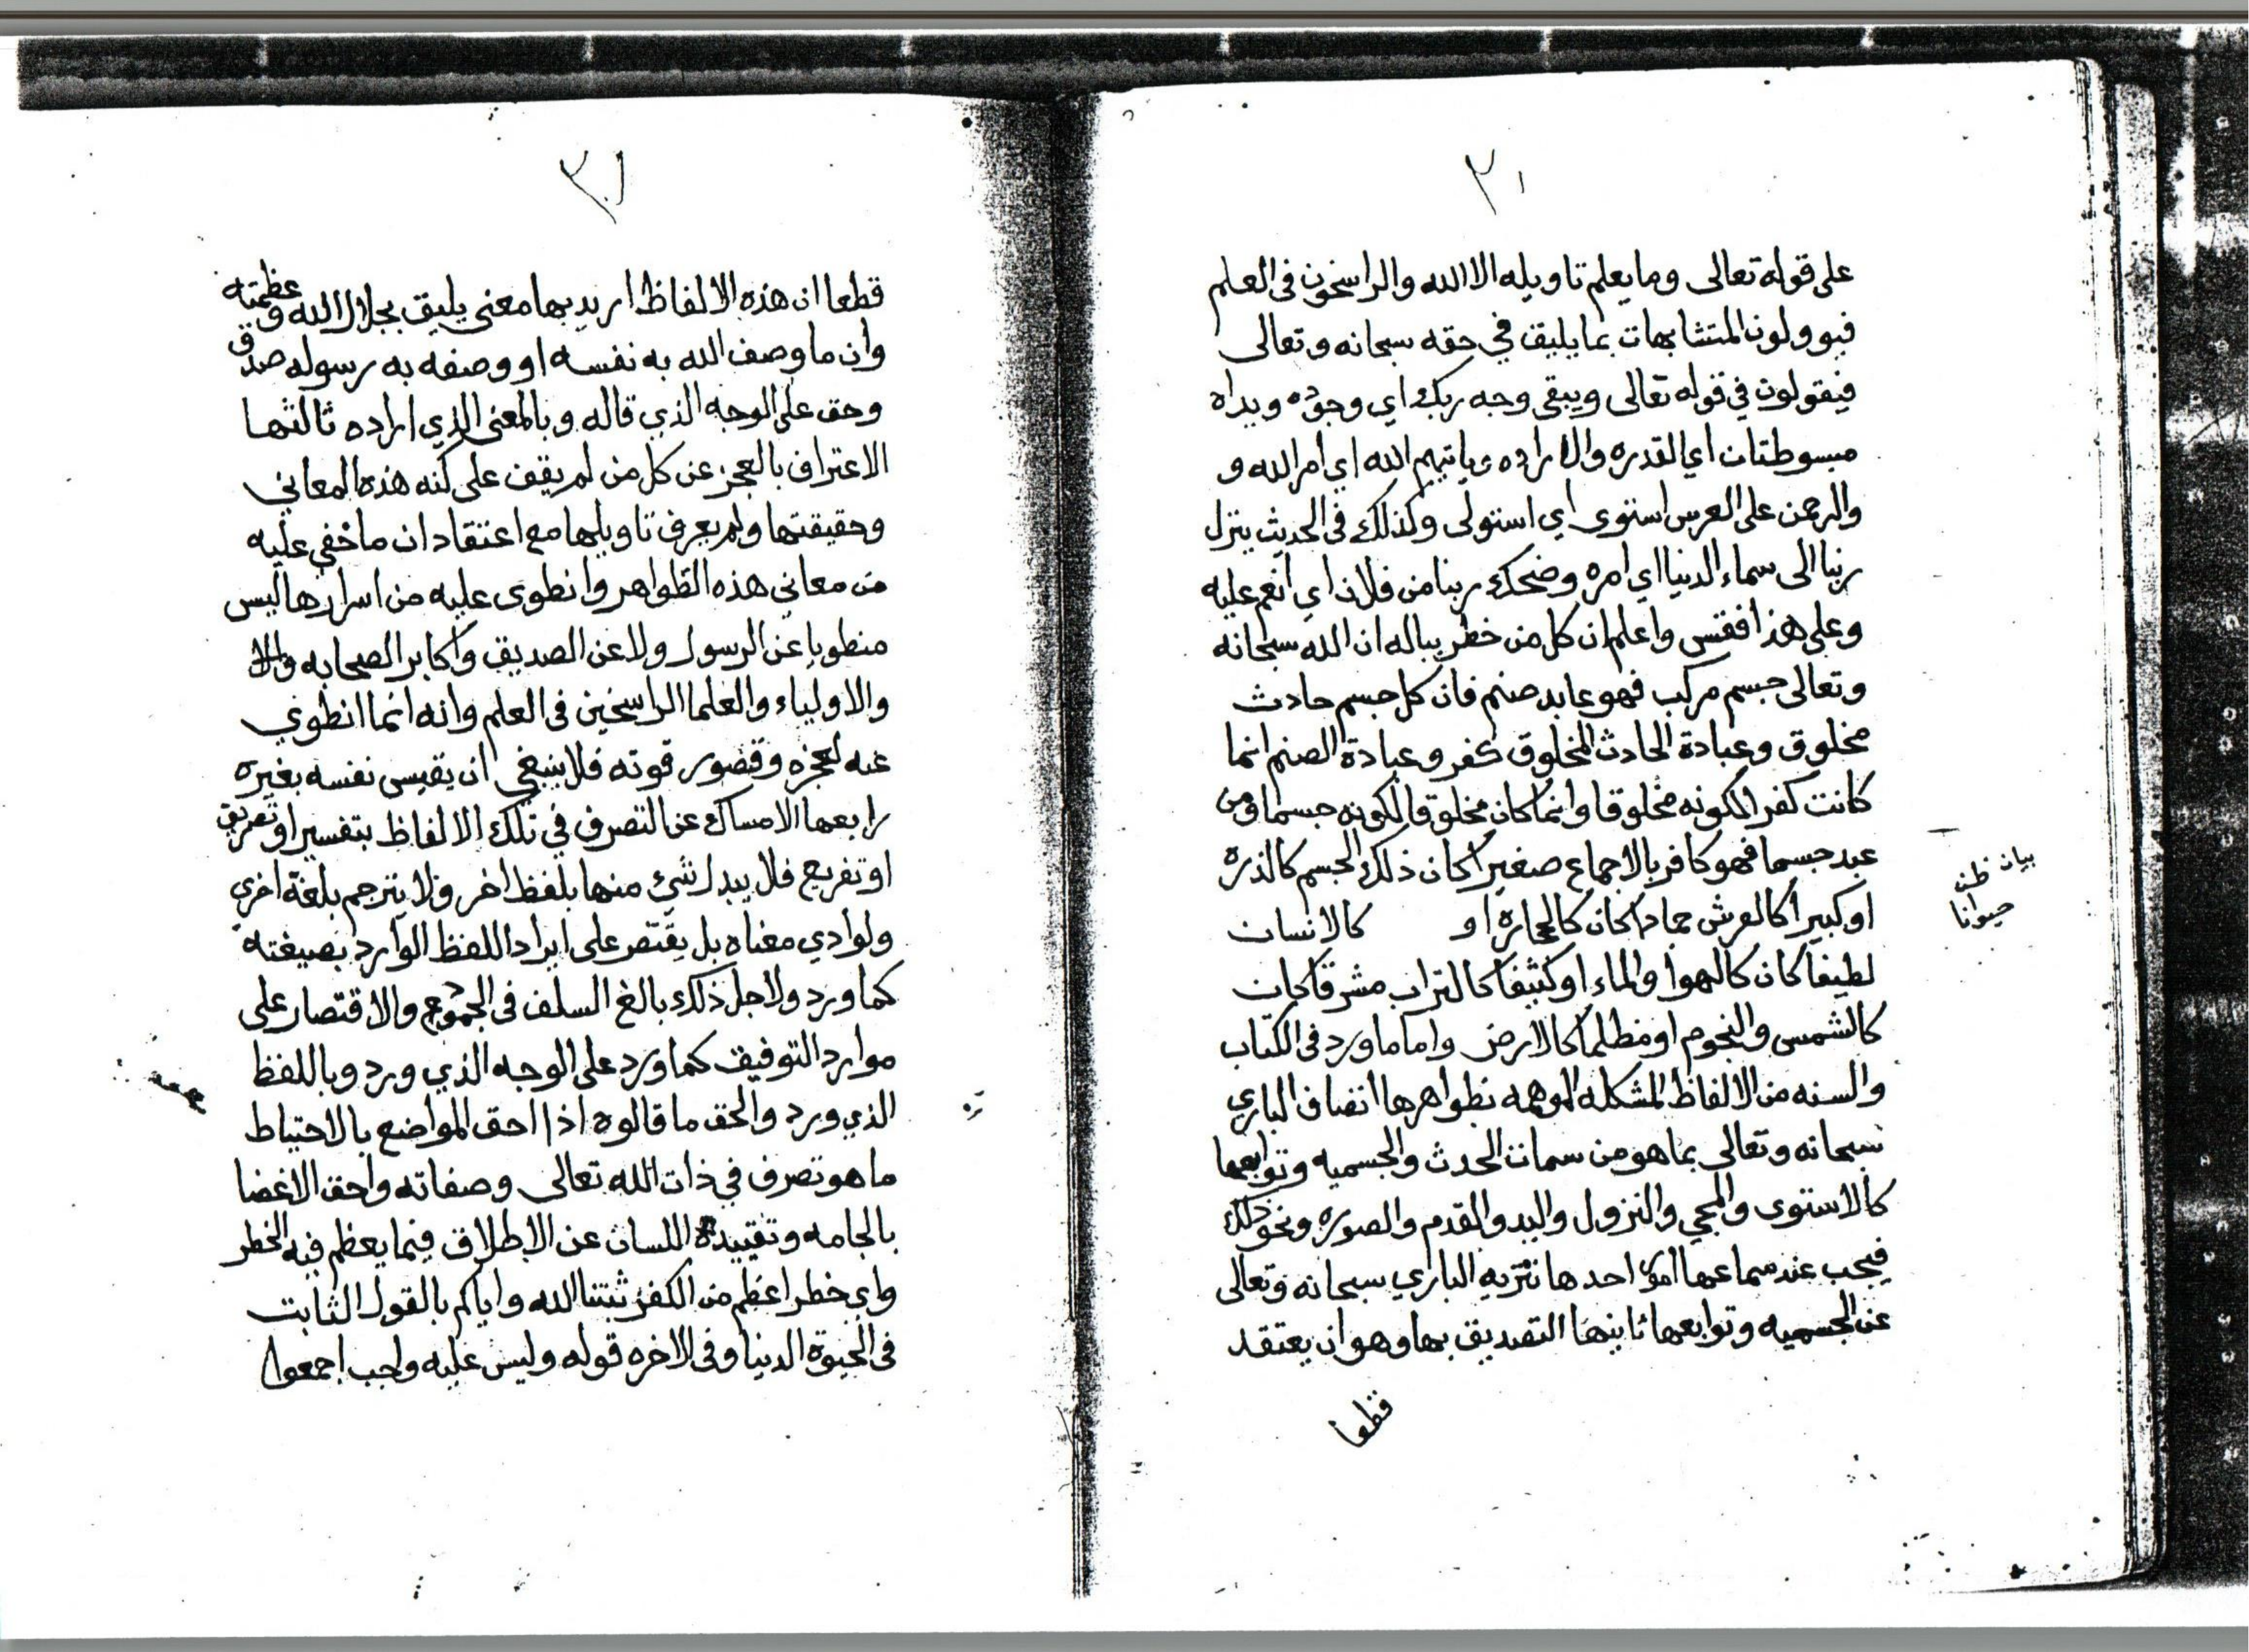 ٣٠
على قوله تعالى وما يعلم تاويله الا الله والراسخون في العلم
فيوولون المتشابهات بما يليق في حقه سبحانه وتعالى
فيقولون في قوله تعالى ويبقى وجه ربك اي وجوده ويداه
مبسوطتان اي القدره والاراده وياتيهم الله اي امر الله و
والرحمن على العرس استوى اي استولى وكذلك في الحديث ينزل
ربنا الى سماء الدنيا اي امره وضحك ربنا من فلان اي انعم عليه
وعلى هذا فقس واعلم ان كل من خطر بباله ان الله سبحانه
وتعالى جسم مركب فهو عابد صنم فان كل جسم حادث
مخلوق وعبادة الحادث المخلوق كفر وعبادة الصنم انما
كانت كفر الكونه مخلوقا وانما كان مخلوقا لكونه جسما ومن
عبد جسما فهو كافر بالاجماع صغيرا كان ذلك الجسم كالذره
او كبيرا كالعرش جمادا كان كالحجارة او كالانسان
لطيفا كان كالهوا والماء او كثيفا كالتراب مشرقا كان
كالشمس والنجوم او مظلما كالارض واما ما ورد في الكتاب
والسنه من الالفاظ المشكله الموهمه بظواهرها اتصاف الباري
سبحانه وتعالى بما هو من سمات الحدث والجسميه وتوابعها
كالاستوى والمجي والنزول واليد والقدم والصوره ونحو ذلك
فيجب عند سماعها امور احدها تنزيه الباري سبحانه وتعالى
عن الجسميه وتوابعها ثانيها التصديق بها وهو ان يعتقد
قطعا
بيان ظن
حيوانا
٣١
قطعا ان هذه الالفاظ اريد بها معنى يليق بجلال الله وعظمته
وان ما وصف الله به نفسه او وصفه به رسوله صدق
وحق على الوجه الذي قاله وبالمعنى الذي اراده ثالثها
الاعتراف بالعجز عن كل من لم يقف على كنه هذه المعاني
وحقيقتها ولم يعرف تاويلها مع اعتقاد ان ما خفي عليه
من معاني هذه الظواهر وانطوى عليه من اسرارها ليس
منطويا عن الرسول ولا عن الصديق واكابر الصحابه
والاولياء والعلما الراسخين في العلم وانه انما انطوي
عنه لعجزه وقصور قوته فلا ينبغي ان يقيس نفسه بغيره
رابعها الامساك عن التصرف في تلك الالفاظ بتفسير او تصريف
او تفريع فلا يبدل شئ منها بلفظ اخر ولا يترجم بلغة اخرى
ولو ادي معناه بل يقتصر على ايراد اللفظ الوارد بصيغته
كما ورد ولاجل ذلك بالغ السلف في الجموع والاقتصار على
موارد التوفيق كما ورد على الوجه الذي ورد وباللفظ
الذي ورد والحق ما قالوه اذ احق المواضع بالاحتياط
ما هو تصرف في ذات الله تعالى وصفاته واحق الاعضا
بالجامه وتقييده اللسان عن الاطلاق فيما يعظم فيه الخطر
واي خطر اعظم من الكفر ثبتنا الله واياكم بالقول الثابت
في الحيوة الدنيا وفي الاخره قوله وليس عليه واجب اجمعوا